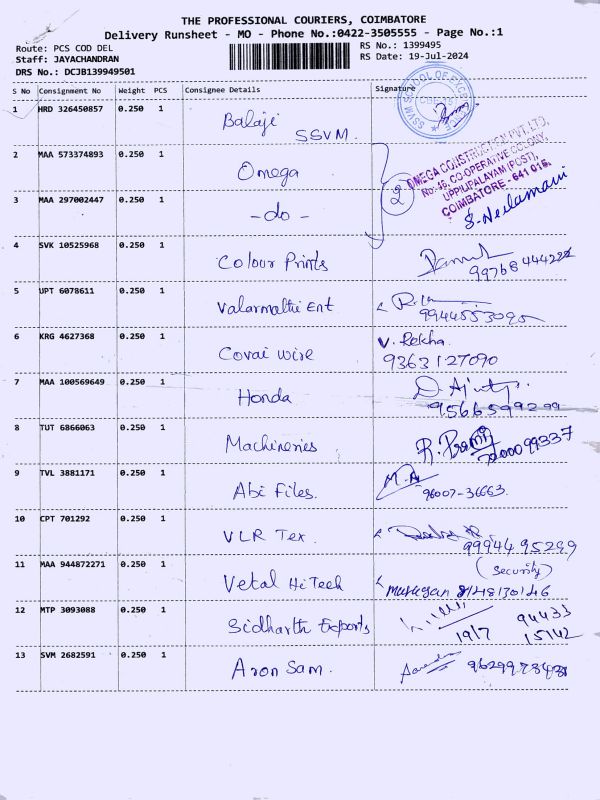 THE PROFESSIONAL COURIERS, COIMBATORE
Delivery Runsheet - MO - Phone No.:0422-3505555 - Page No.:1
Route: PCS COD DEL
Staff: JAYACHANDRAN
DRS No.: DCJB139949501
RS No.: 1399495
RS Date: 19-Jul-2024
S No Consignment No Weight PCS Consignee Details Signature
1 HRD 326450857 0.250 1 Balaji SSVM
SSVM SCHOOL OF EXCELLENCE
2 MAA 573374893 0.250 1 Omega
2
OMEGA CONSTRUCTION PVT. LTD,
No: 46, CO-OPERATIVE COLONY,
UPPILIPALAYAM (POST),
COIMBATORE - 641 015.
3 MAA 297002447 0.250 1 -do- S. Neelamani
4 SVK 10525968 0.250 1 Colour Prints
5 UPT 6078611 0.250 1 Valarmathi Ent
6 KRG 4627368 0.250 1 Covai wire V. Rekha
9363127090
7 MAA 100569649 0.250 1 Honda
8 TUT 6866063 0.250 1 Machineries
9 TVL 3881171 0.250 1 Abi Files.
96007-36663.
10 CPT 701292 0.250 1 VLR Tex.
99944 95299
11 MAA 944872271 0.250 1 Vetal HiTech (Security)
Murugan
12 MTP 3093088 0.250 1 Sidharth Exports
19/7 94433
15142
13 SVM 2682591 0.250 1 Aron Sam.